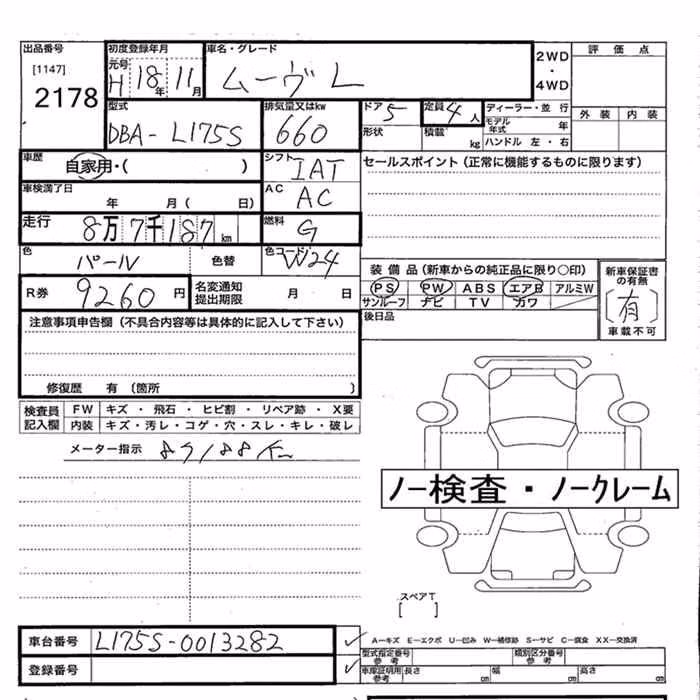 出品番号 初度登録年月 車名・グレード 評価点
[1147] 元号 2WD
2178 H 18年 11月 ムーヴ L ・
4WD 外装 内装
型式 排気量又はkw ドア 5 定員 4人 ディーラー・並行
DBA-L175S 660 形状 積載 kg モデル年式 年
ハンドル 左・右
車歴 自家用・( ) シフト IAT セールスポイント (正常に機能するものに限ります)
車検満了日 年 月( 日) AC AC
走行 8万7千187km 燃料 G
色 パール 色替 色コード W24
装備品 (新車からの純正品に限り○印) 新車保証書の有無
R券 9260円 名変通知提出期限 月 日 PS PW ABS エアB アルミW (有)
サンルーフ ナビ TV カワ 車載不可
注意事項申告欄 (不具合内容等は具体的に記入して下さい) 後日品
修復歴 有 (箇所 )
検査員記入欄 FW キズ ・ 飛石 ・ ヒビ割 ・ リペア跡 ・ X要
内装 キズ・汚レ・コゲ・穴・スレ・キレ・破レ
メーター指示
ノー検査・ノークレーム
スペアT
[ ]
車台番号 L175S-0013282 A−キズ E−エクボ U−凹み W−補修跡 S−サビ C−腐食 XX−交換済
型式指定番号 参考 類別区分番号 参考
登録番号 車庫証明用参考 長さ cm 幅 cm 高さ cm